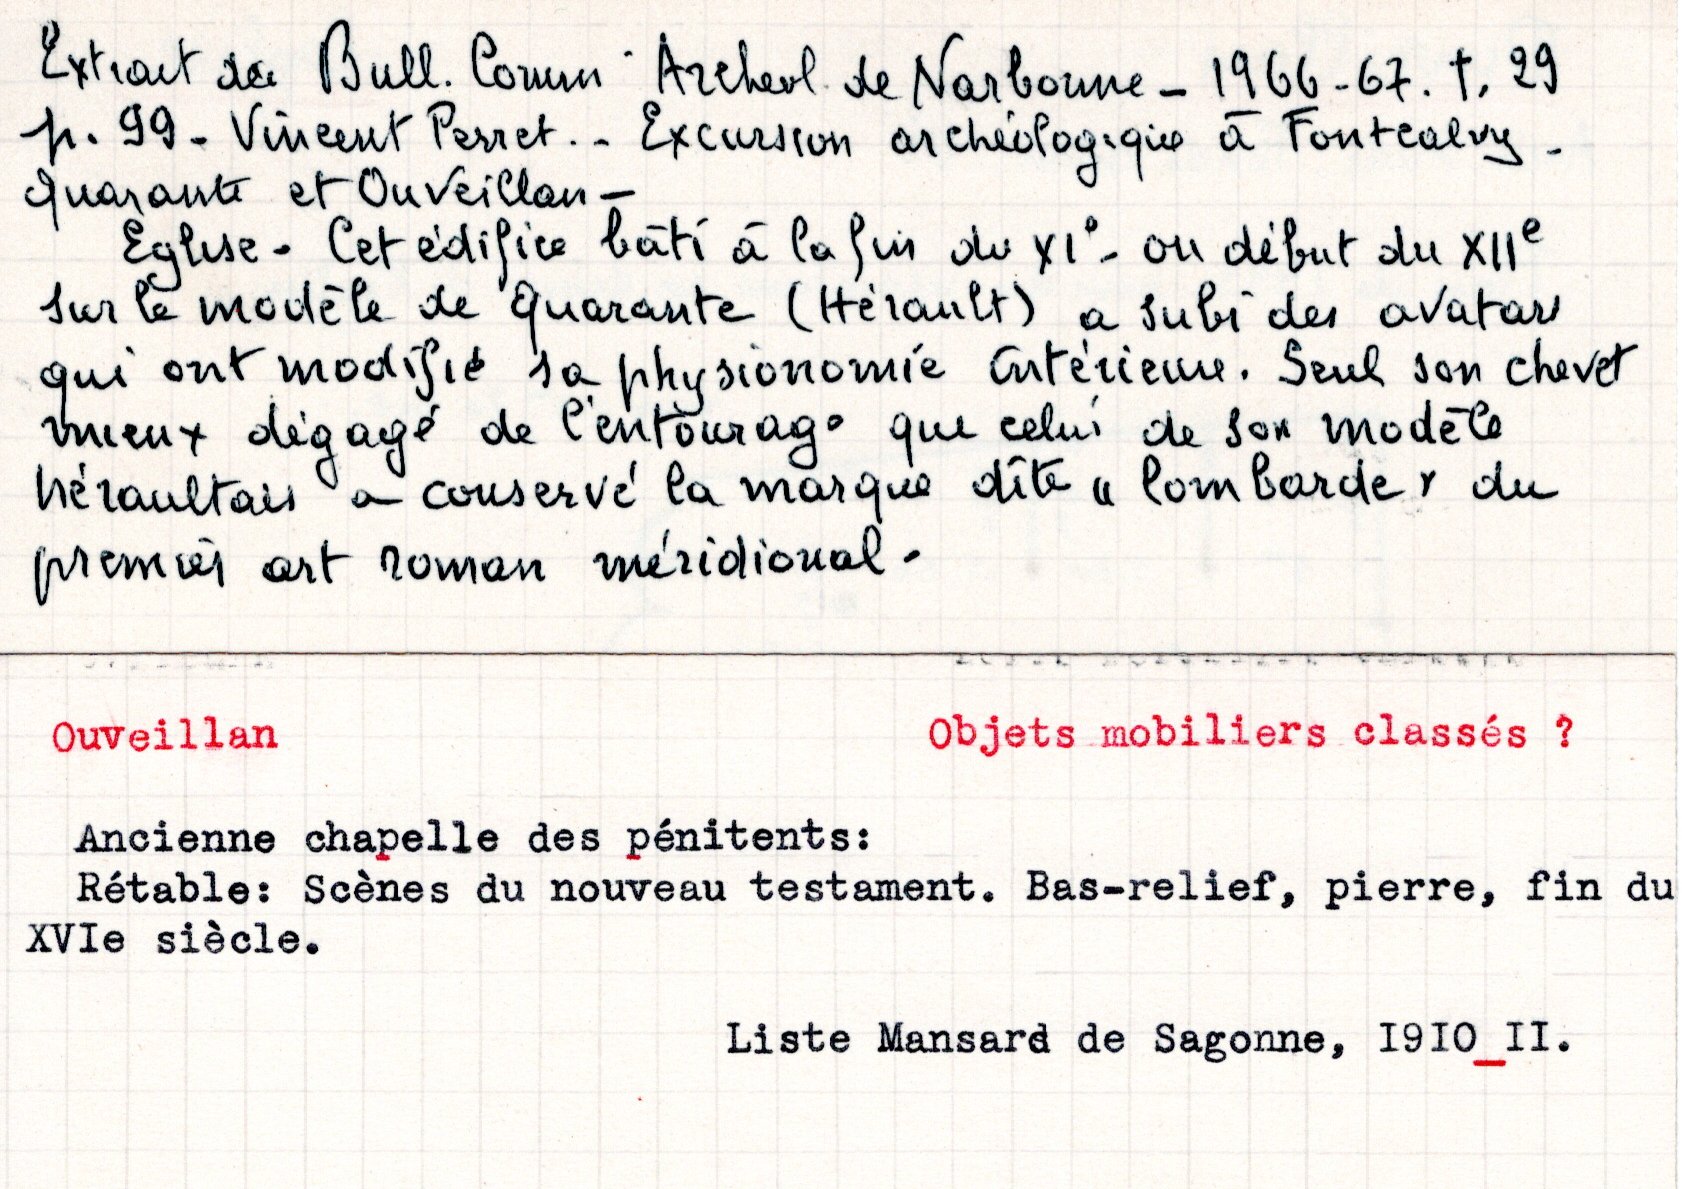 Extrait du Bull. Comm Archeol. de Narbonne - 1966-67. t. 29
p. 99 - Vincent Perret. - Excursion archéologique à Fontcalvy -
Quarante et Ouveillan -
Eglise - Cet édifice bâti à la fin du XIe - ou début du XIIe
sur le modèle de Quarante (Hérault) a subi des avatars
qui ont modifié sa physionomie intérieure. Seul son chevet
mieux dégagé de l'entourage que celui de son modèle
héraultais a conservé la marque dîte "lombarde" du
premier art roman méridional -
Ouveillan Objets mobiliers classés ?
Ancienne chapelle des pénitents:
Rétable: Scènes du nouveau testament. Bas-relief, pierre, fin du
XVIe siècle.
Liste Mansard de Sagonne, I9I0_II.